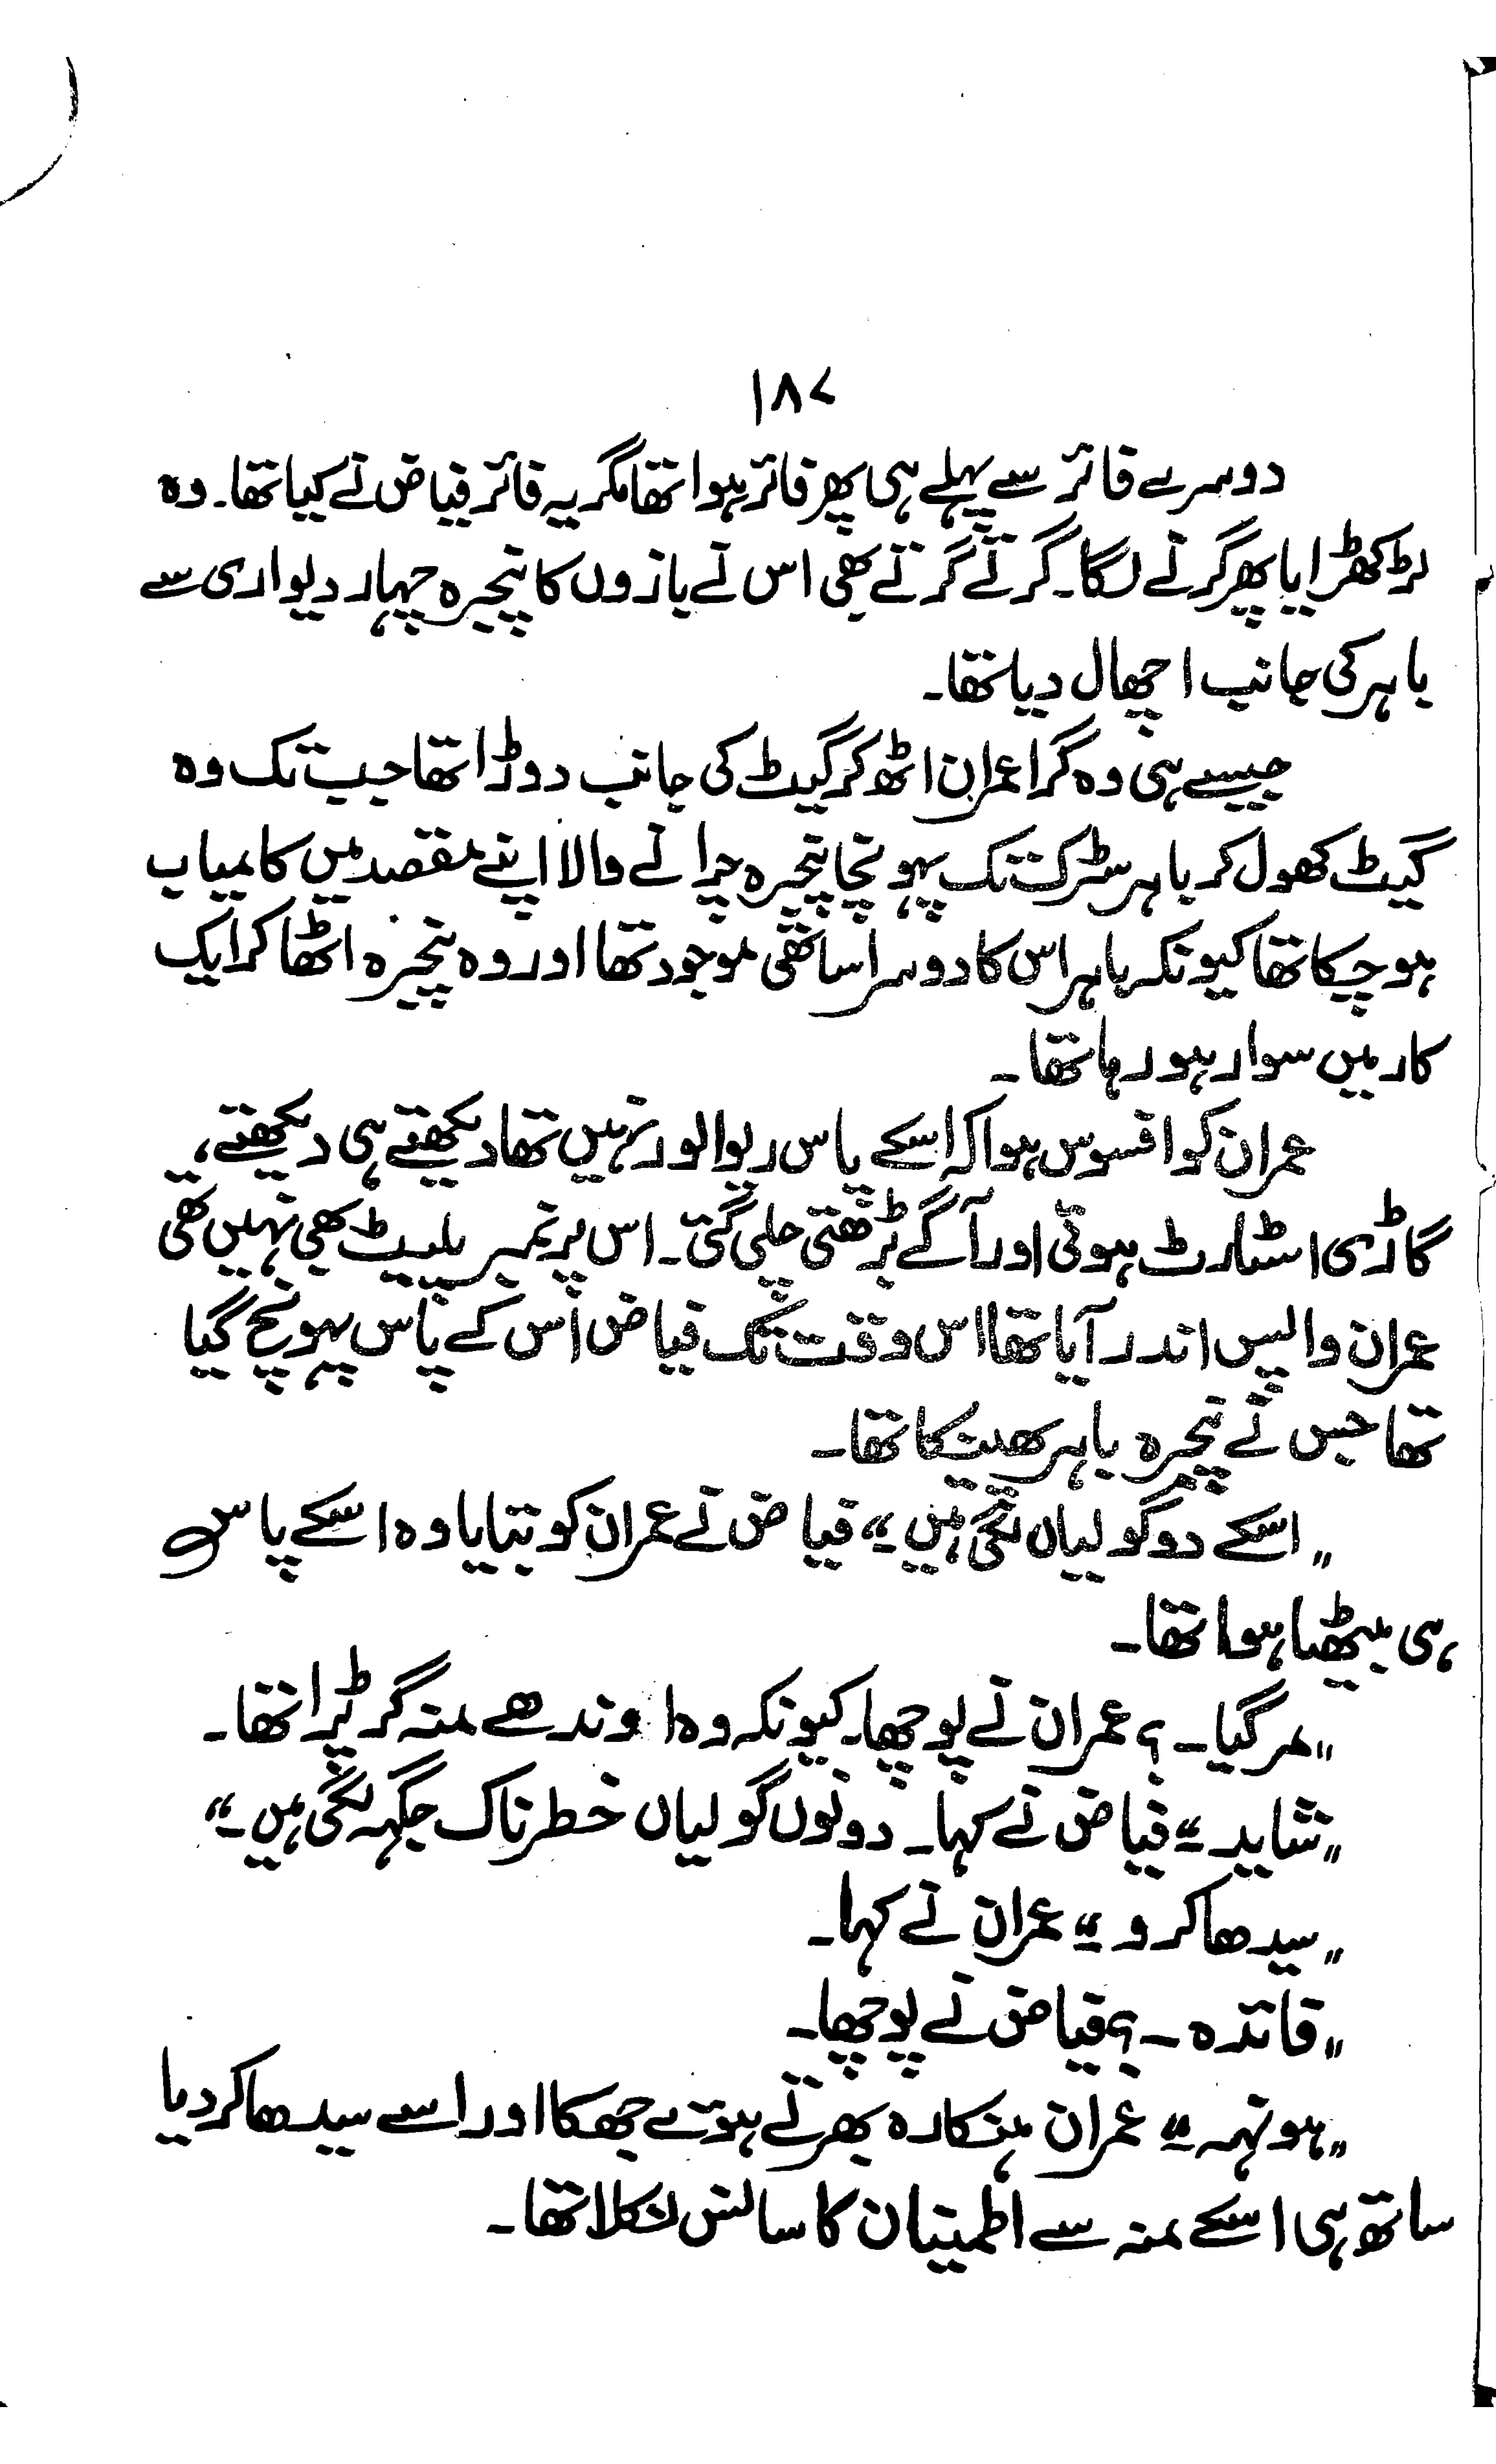 ۱۸۷
دوسرے فائر سے پہلے ہی پھر فائر ہوا تھا مگر یہ فائر فیاض نے کیا تھا۔ وہ
لڑکھڑایا پھر گرنے لگا۔ گرتے گرتے بھی اس نے بازوں کا پنجرہ چہار دیواری سے
باہر کی جانب اچھال دیا تھا۔
جیسے ہی وہ گرا عمران اٹھ کر گیٹ کی جانب دوڑا تھا جب تک وہ
گیٹ کھول کر باہر سڑک تک پہونچا پنجرہ چرانے والا اپنے مقصد میں کامیاب
ہو چکا تھا کیونکہ باہر اس کا دوسرا ساتھی موجود تھا اور وہ پنجرہ اٹھا کر ایک
کار میں سوار ہو رہا تھا۔
عمران کو افسوس ہوا کہ اسکے پاس ریوالور نہیں تھا دیکھتے ہی دیکھتے،
گاڑی اسٹارٹ ہوئی اور آگے بڑھتی چلی گئی۔ اس پر نمبر پلیٹ بھی نہیں تھی
عمران واپس اندر آیا تھا اس وقت تک فیاض اُس کے پاس پہونچ گیا
تھا جس نے پنجرہ باہر پھینکا تھا۔
”اسکے دو گولیاں لگی ہیں۔“ فیاض نے عمران کو بتایا وہ اسکے پاس
ہی بیٹھا ہوا تھا۔
”مر گیا۔؟ عمران نے پوچھا۔ کیونکہ وہ اوندھے منہ گر پڑا تھا۔
”شاید۔“ فیاض نے کہا۔ دونوں گولیاں خطرناک جگہ لگی ہیں۔“
”سیدھا کرو۔“ عمران نے کہا۔
”فائدہ۔؟ فیاض نے پوچھا۔
”ہونہہ۔“ عمران ہنکارہ بھرتے ہوئے جھکا اور اسے سیدھا کر دیا
ساتھ ہی اسکے منہ سے اطمینان کا سانس نکلا تھا۔